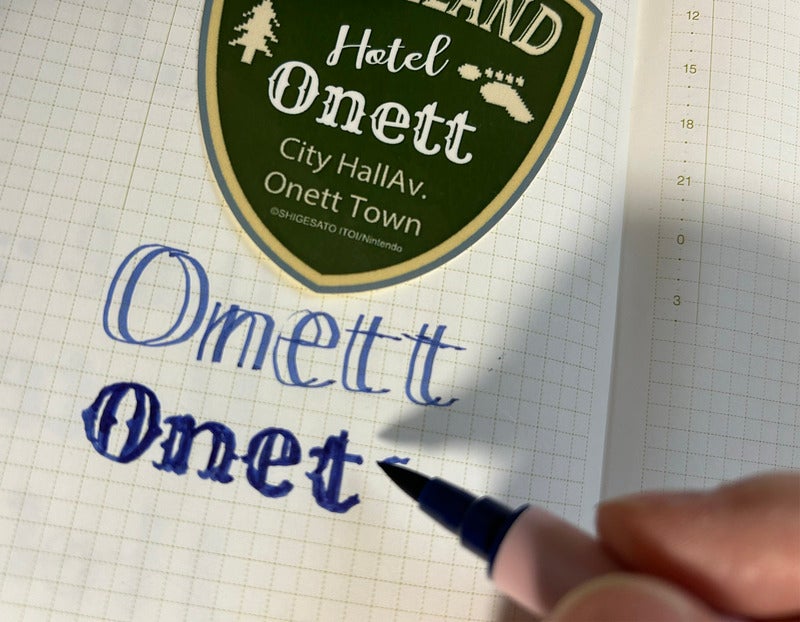 Hotel
Onett
City HallAv.
Onett Town
©SHIGESATO ITOI/Nintendo
Onett
Onet
12
15
18
21
0
3